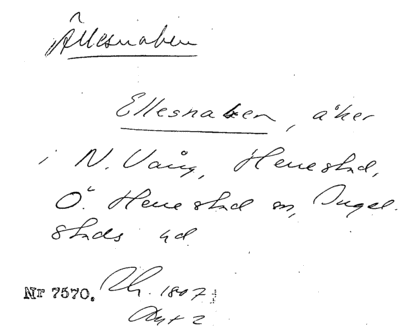 Ällesnaben
Ellesnaben, åker
i N. Vång, Herrestad,
Ö. Herrestad sn, Ingel-
stads hd
Nr 7570. 1807;
Akt 2